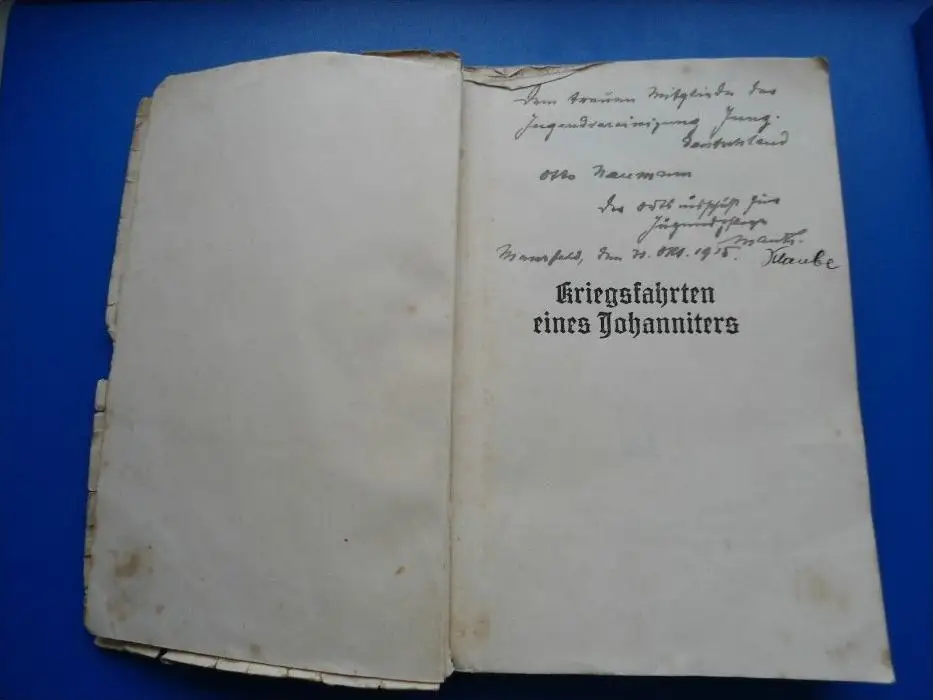 Dem treuen Mitgliede der
Jugendvereinigung Jung-
Deutschland
Otto Naumann
Der Ortsausschuß für
Jugendpflege
Mansfeld, den Okt. 1915.
Klaube
Kriegsfahrten
eines Johanniters